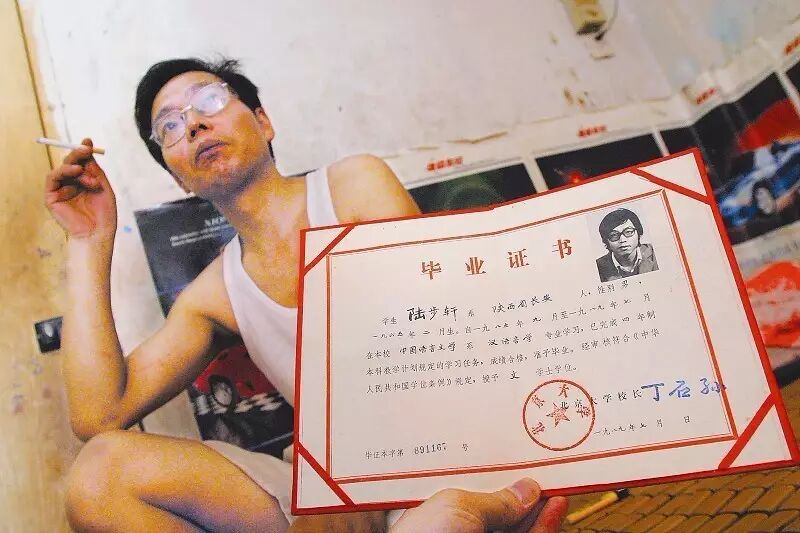 毕业证书
学生 陆步轩 系 陕西省长安 人，性别 男，
一九六五年 二 月生。自一九八五年 九 月至一九八九年 七 月
在本校 中国语言文学 系 汉语言学 专业学习，已完成 四 年制
本科教学计划规定的学习任务，成绩合格，准予毕业，经审核符合《中华
人民共和国学位条例》规定，授予 文 学士学位。
北京大学校长 丁石孙
北京大学
一九八九年七月 日
毕证本字第 891167 号